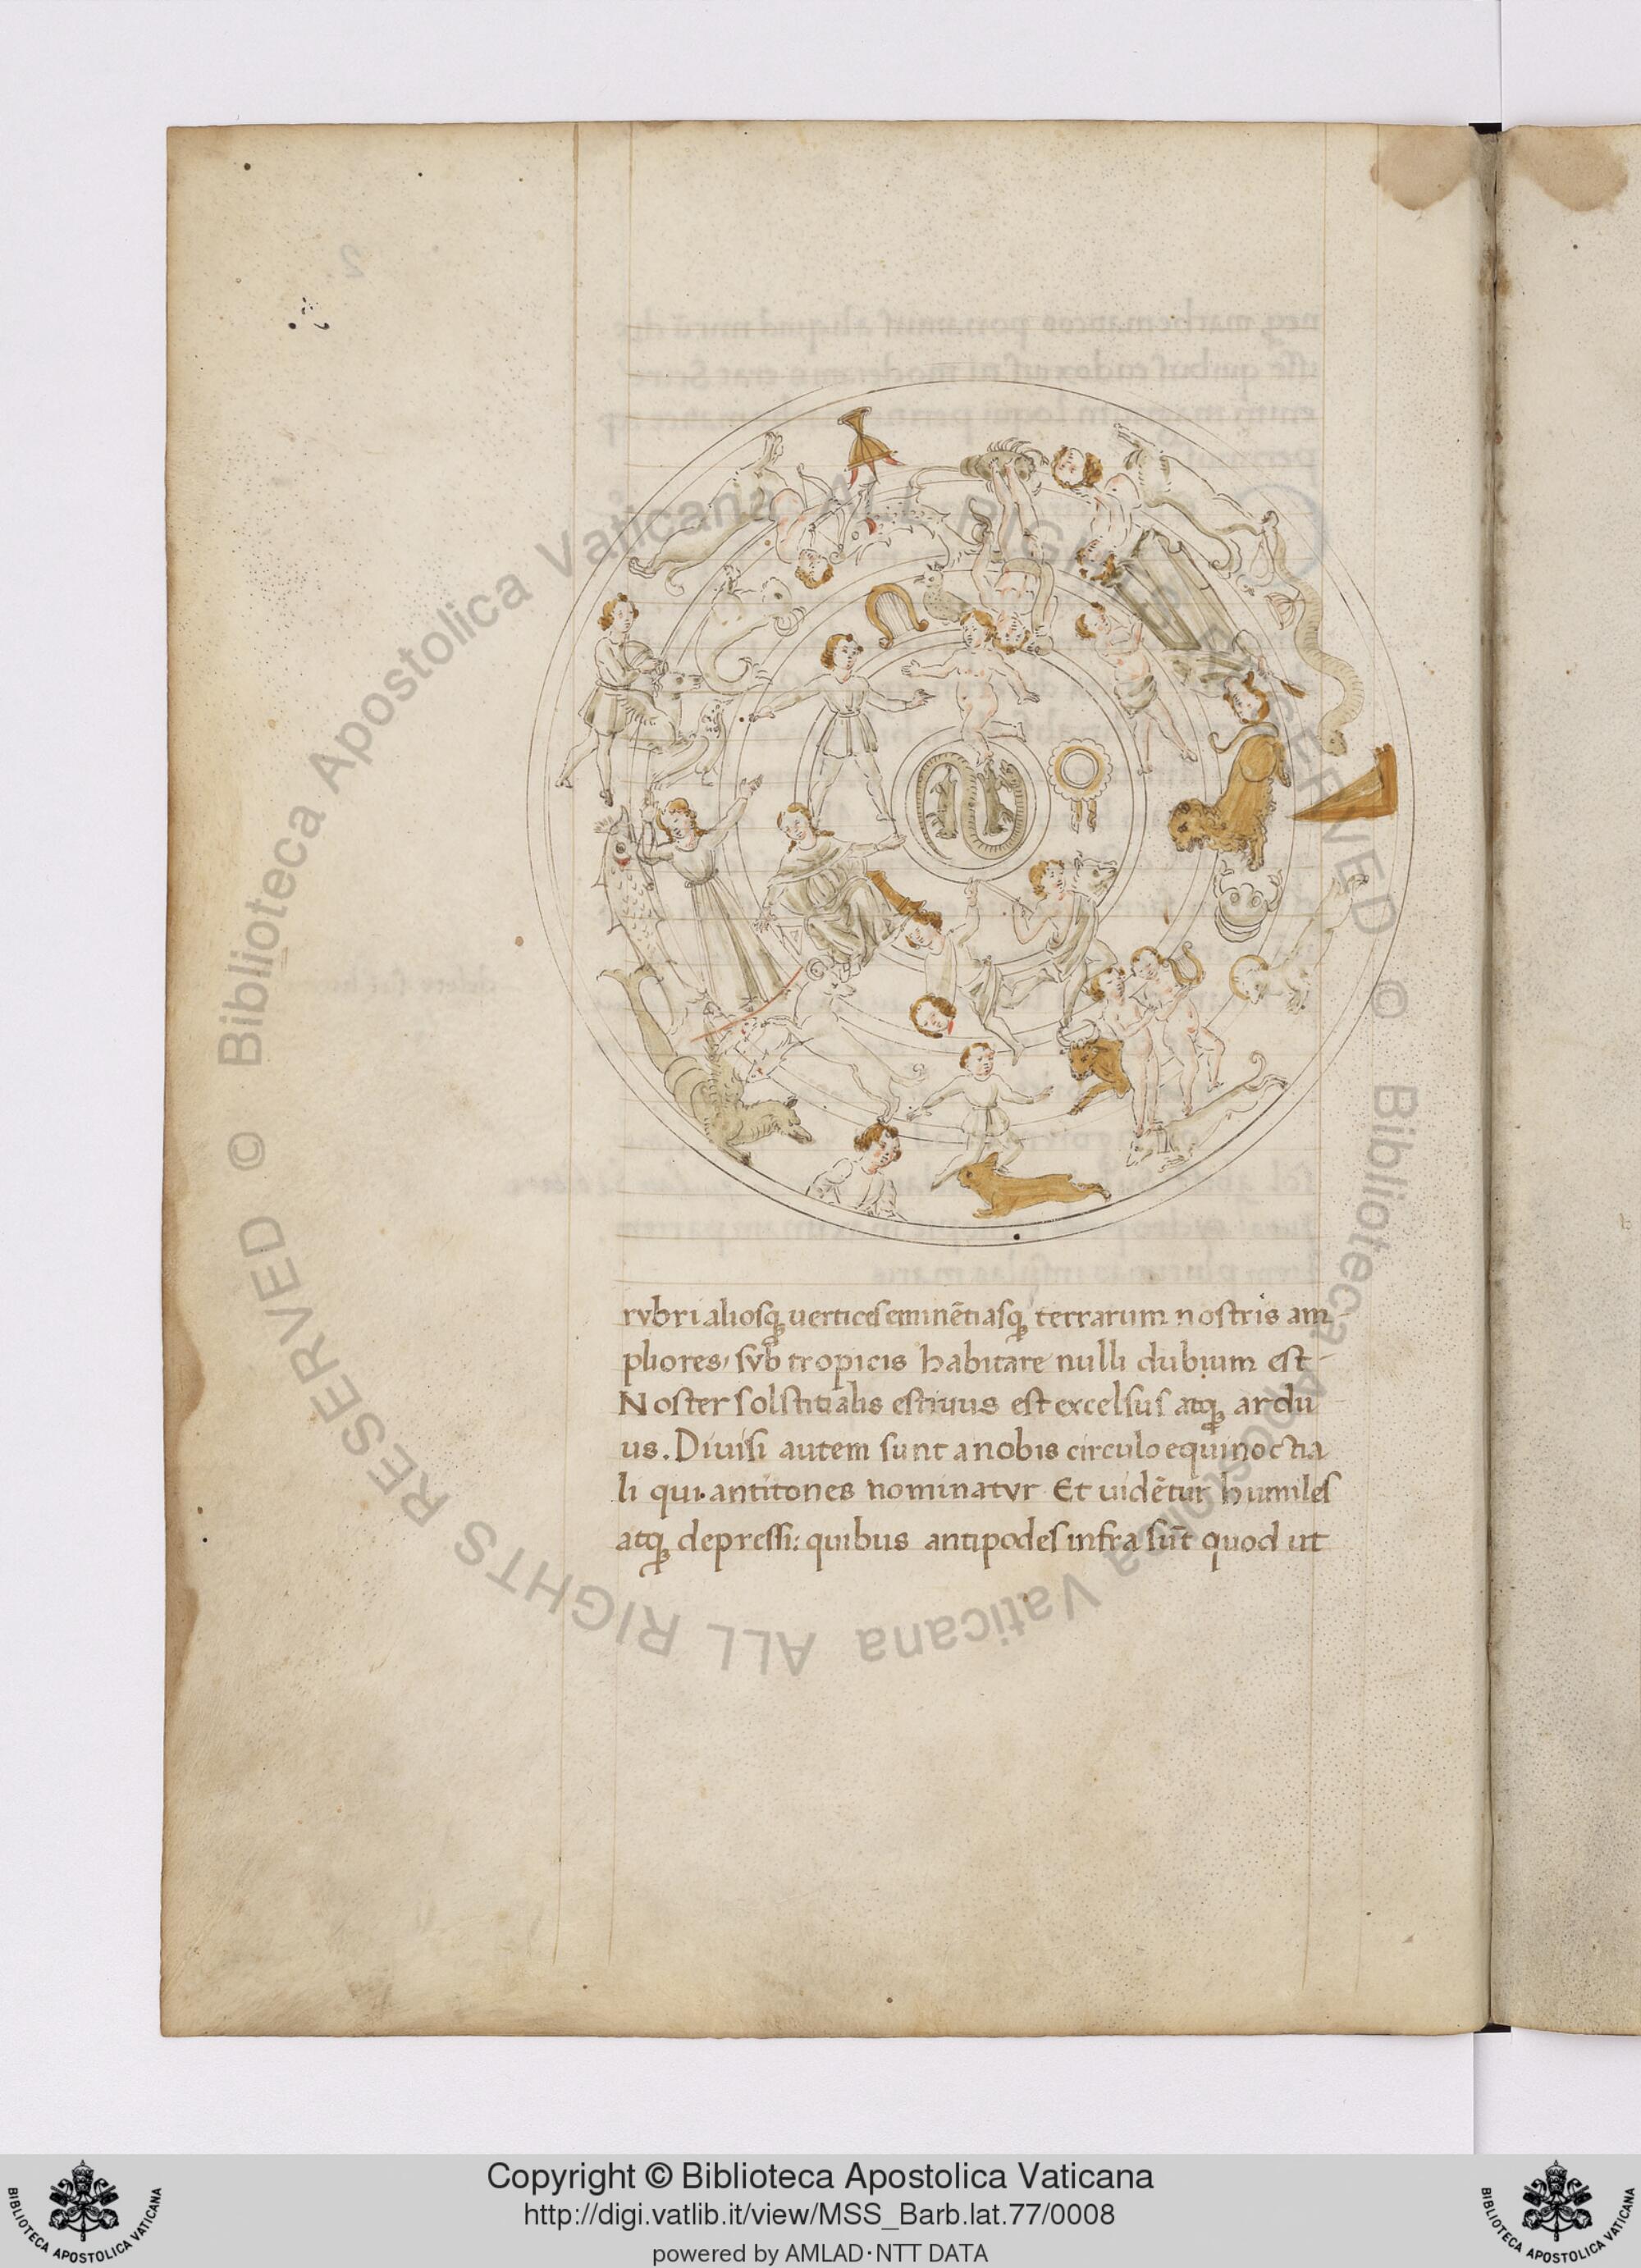 rvbri aliosq uertices eminētiasq terrarum nostris am
pliores, svb tropicis habitare nulli dubium est
Noster solstitialis estiuus est excelsus atq ardu
us. Diuisi autem sunt a nobis circulo equinoctia
li qui antitones nominatvr Et uidētur humiles
atq depressi: quibus antipodes infra sūt quod ut
© Biblioteca Apostolica Vaticana ALL RIGHTS RESERVED © Biblioteca Apostolica Vaticana ALL RIGHTS RESERVED
BIBLIOTECA APOSTOLICA VATICANA
Copyright © Biblioteca Apostolica Vaticana
http://digi.vatlib.it/view/MSS_Barb.lat.77/0008
powered by AMLAD·NTT DATA
BIBLIOTECA APOSTOLICA VATICANA